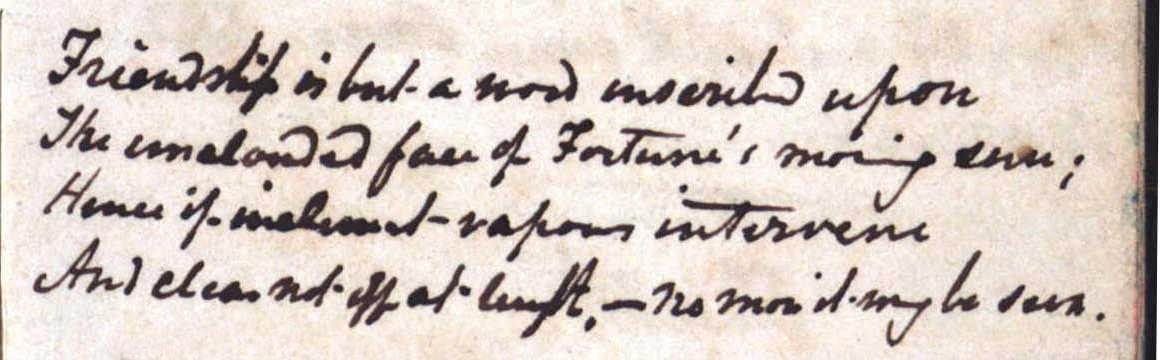 Friendship is but a word inscribed upon
The unclouded face of Fortune's moving sun;
Hence if inclement vapours intervene
And clear not off at length, — no more it may be seen.